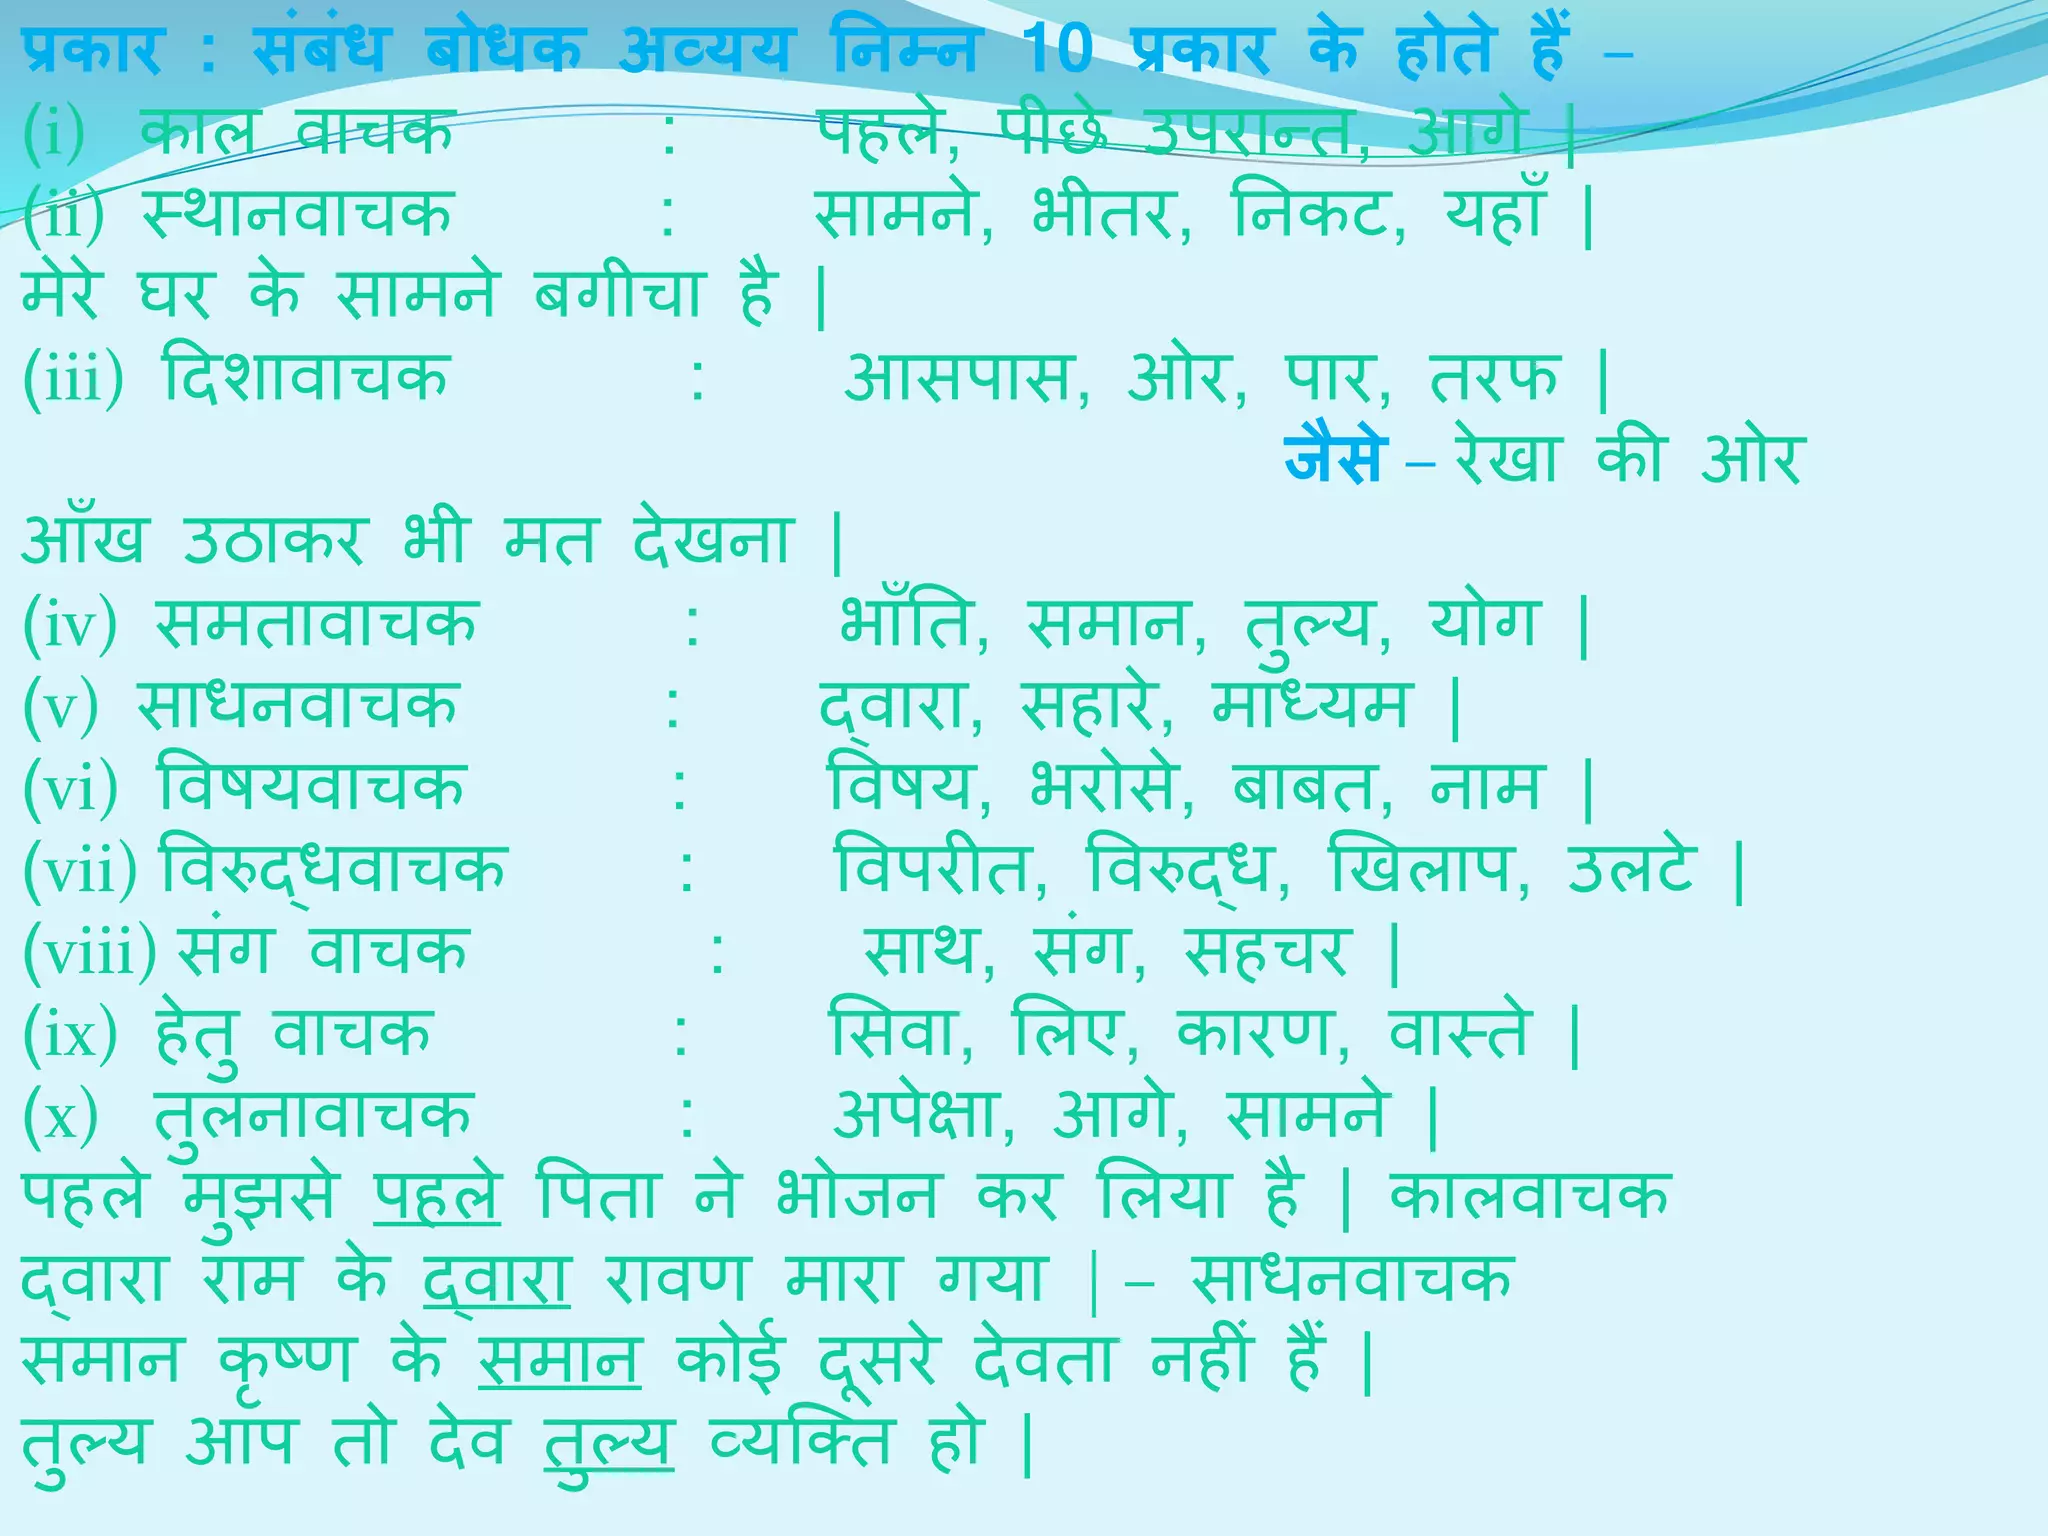 प्रकार : संबंध बोधक अव्यय निम्न 10 प्रकार के होते हैं –
(i) काल वाचक : पहले, पीछे उपरान्त, आगे |
(ii) स्थानवाचक : सामने, भीतर, निकट, यहाँ |
मेरे घर के सामने बगीचा है |
(iii) दिशावाचक : आसपास, ओर, पार, तरफ |
जैसे – रेखा की ओर
आँख उठाकर भी मत देखना |
(iv) समतावाचक : भाँति, समान, तुल्य, योग |
(v) साधनवाचक : द्वारा, सहारे, माध्यम |
(vi) विषयवाचक : विषय, भरोसे, बाबत, नाम |
(vii) विरुद्धवाचक : विपरीत, विरुद्ध, खिलाप, उलटे |
(viii) संग वाचक : साथ, संग, सहचर |
(ix) हेतु वाचक : सिवा, लिए, कारण, वास्ते |
(x) तुलनावाचक : अपेक्षा, आगे, सामने |
पहले मुझसे पहले पिता ने भोजन कर लिया है | कालवाचक
द्वारा राम के द्वारा रावण मारा गया | – साधनवाचक
समान कृष्ण के समान कोई दूसरे देवता नहीं हैं |
तुल्य आप तो देव तुल्य व्यक्ति हो |